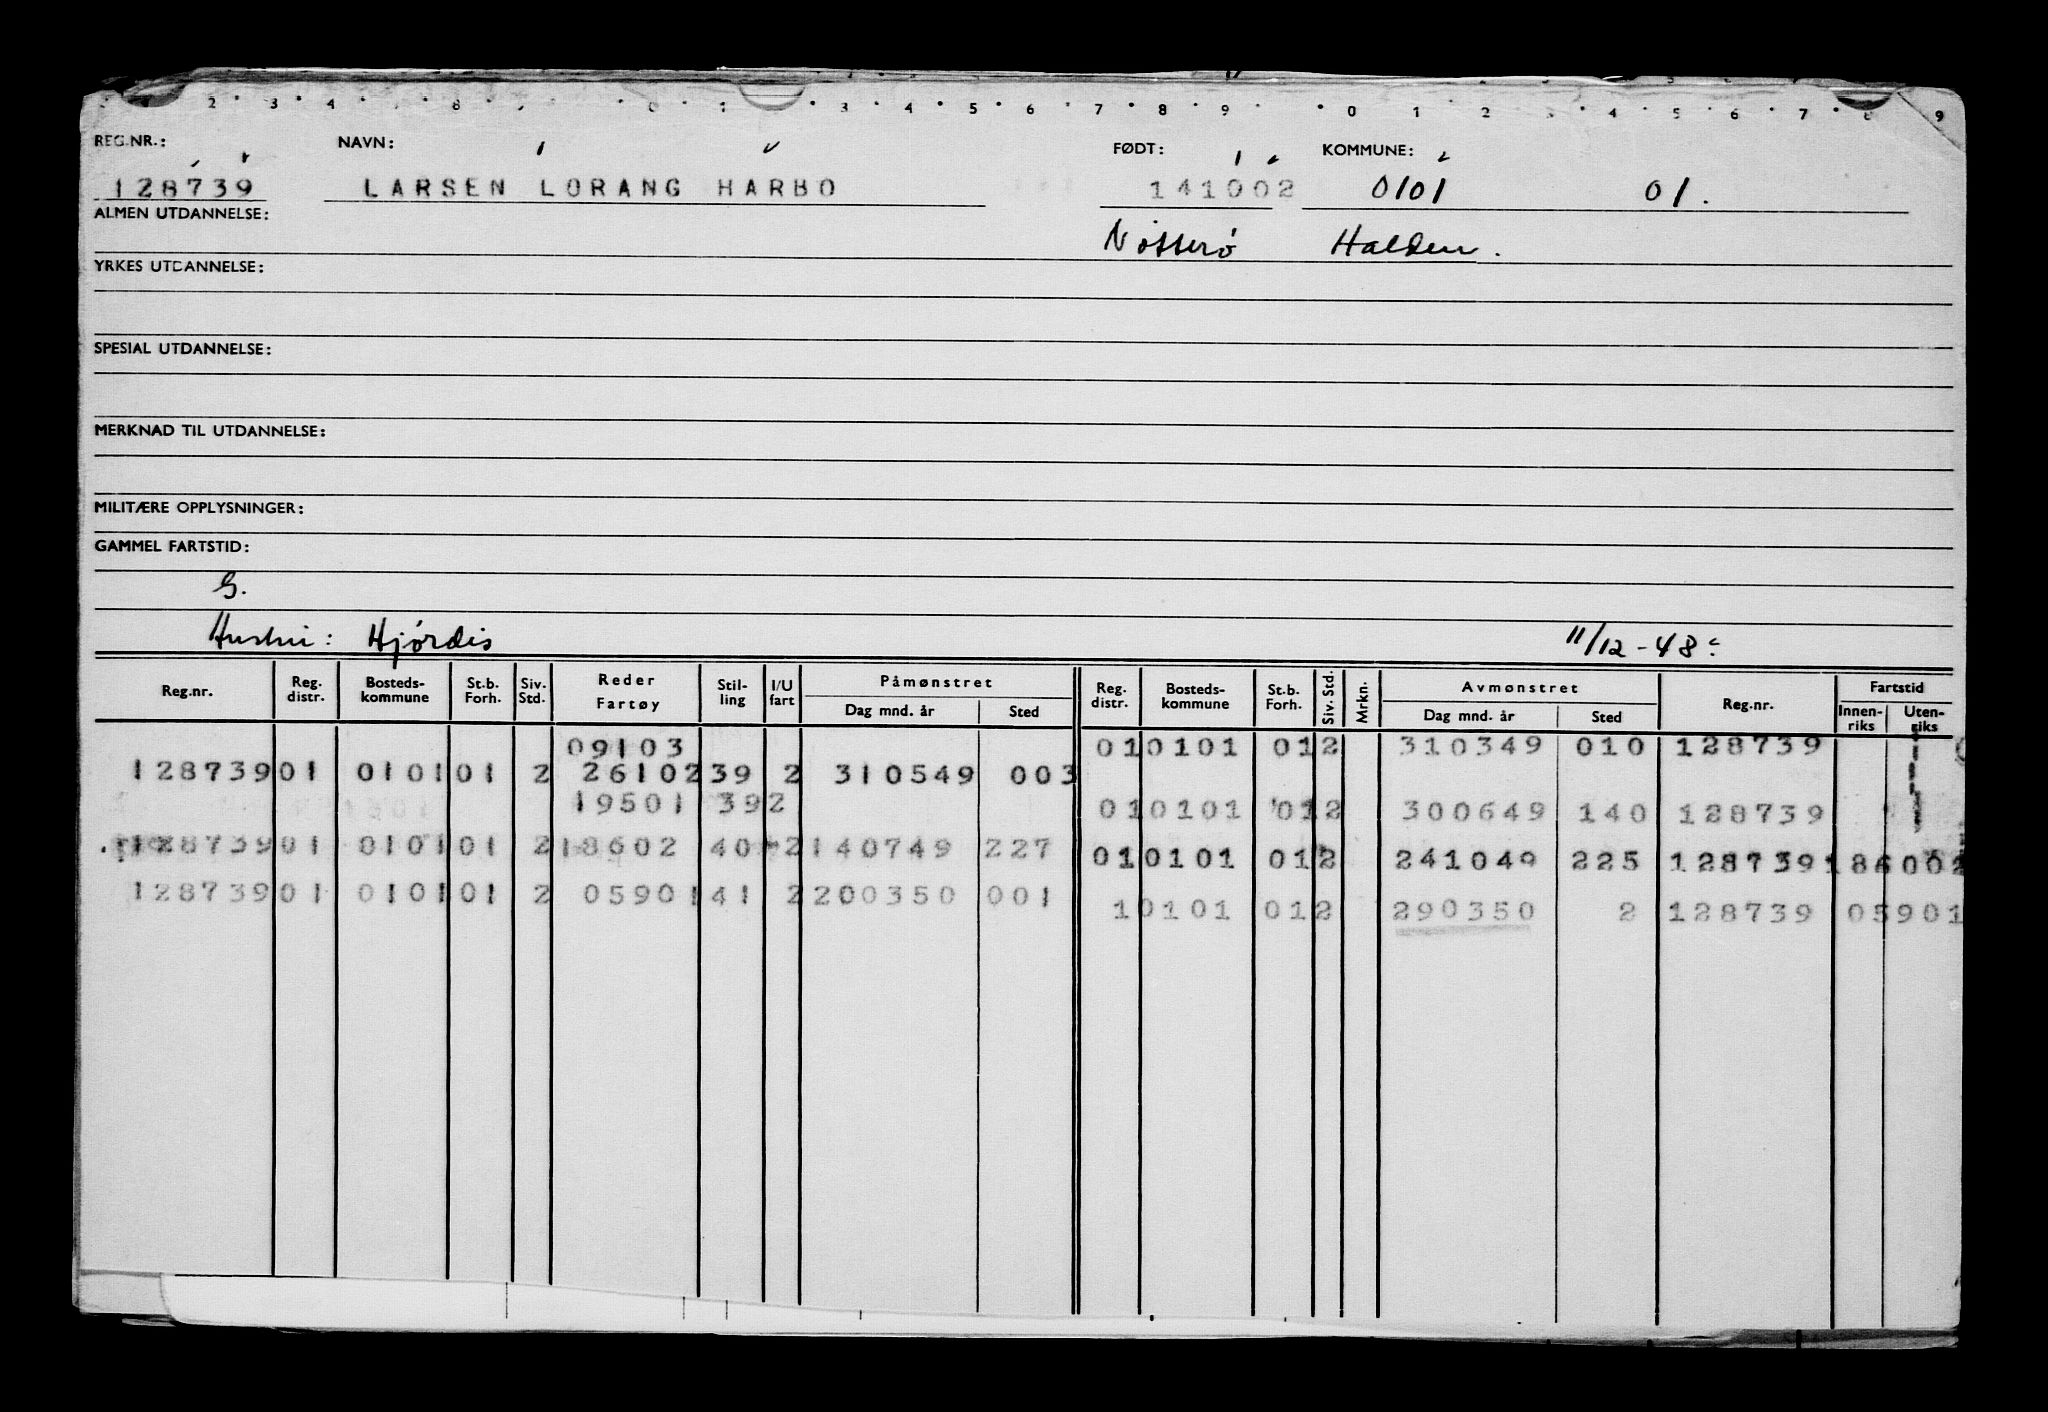 2 3 4 8 3 4 5 6 7 8 9 0 1 2 3 4 5 6 7 8 9
REG.NR.: NAVN: FØDT: KOMMUNE:
128739 LARSEN LORANG HARBO 141002 0101 01.
ALMEN UTDANNELSE:
Nötterö Halden.
YRKES UTDANNELSE:
SPESIAL UTDANNELSE:
MERKNAD TIL UTDANNELSE:
MILITÆRE OPPLYSNINGER:
GAMMEL FARTSTID:
G.
Hustru: Hjørdis 11/12-48
Reg.nr. Reg. distr. Bosteds-kommune St.b. Forh. Siv. Std. Reder Fartøy Stil-ling I/U fart Påmønstret Dag mnd. år Sted Reg. distr. Bosteds-kommune St.b. Forh. Siv. Std. Mrkn. Avmønstret Dag mnd. år Sted Reg.nr. Fartstid Innen-riks Uten-riks
09103 01 0101 01 2 310349 010 128739
128739 01 0101 01 2 26102 39 2 310549 003
19501 39 2 01 0101 01 2 300649 140 128739
128739 01 0101 01 2 18602 40 2 140749 227
01 0101 01 2 241049 225 128739 186002
128739 01 0101 01 2 05901 41 2 200350 001
1 0101 01 2 290350 2 128739 05901